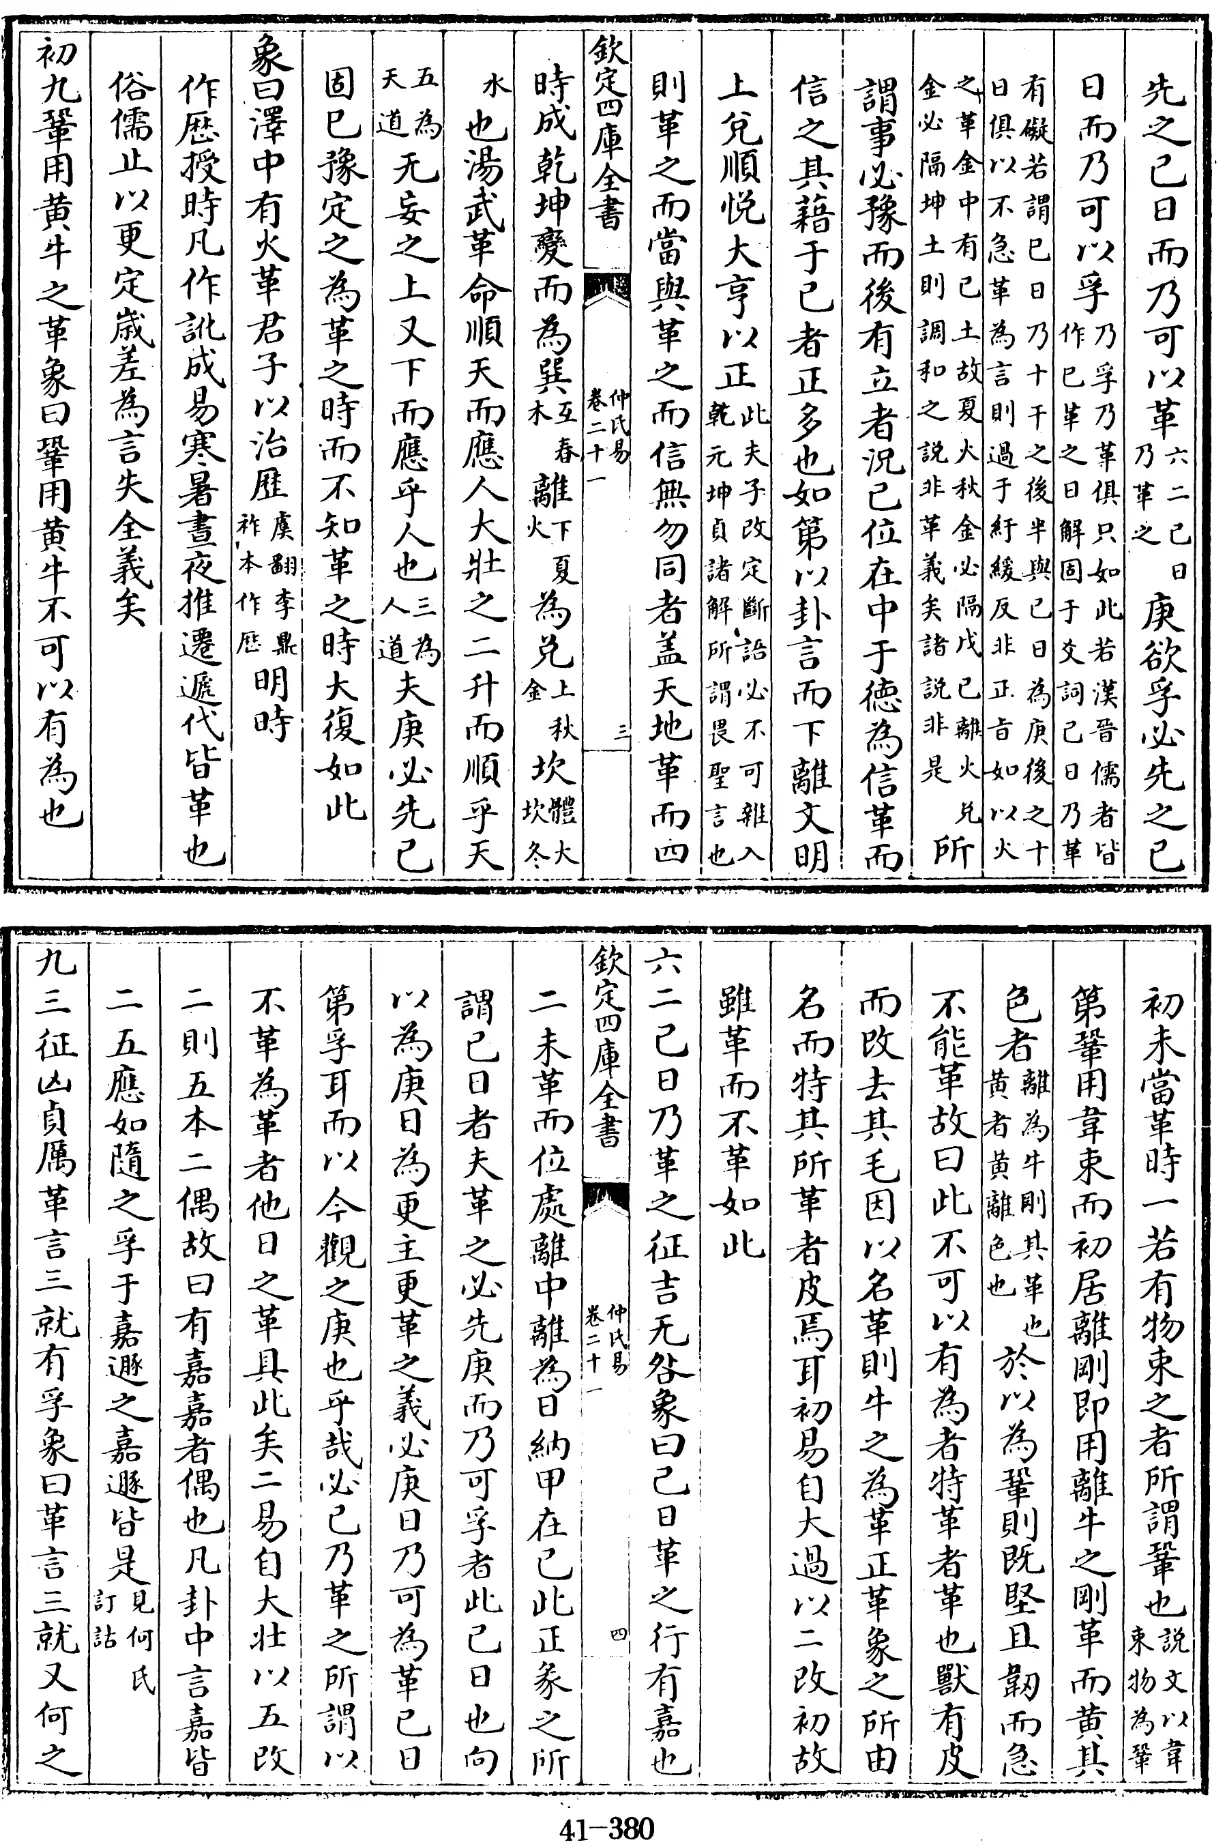 先之己日而乃可以革六二己日乃革之庚欲孚必先之己
日而乃可以孚乃孚乃革俱只如此若漢晉儒者皆作巳革之日解固于爻詞己日乃革
有礙若謂己日乃十干之後半與己日為庚後之十日俱以不急革為言則過于紆緩反非正旨如以火
之革金中有己土故夏火秋金必隔戊己離火兌金必隔坤土則調和之說非革義矣諸說非是所
謂事必豫而後有立者況己位在中于德為信革而
信之其藉于己者正多也如第以卦言而下離文明
上兌順悅大亨以正此夫子改定斷語必不可雜入乾元坤貞諸解所謂畏聖言也
則革之而當與革之而信無勿同者蓋天地革而四
欽定四庫全書
仲氏易
卷二十一
三
時成乾坤變而為巽互春木離下夏火為兌上秋金坎體大坎冬
水也湯武革命順天而應人大壯之二升而順乎天
五為天道无妄之上又下而應乎人也三為人道夫庚必先己
固已豫定之為革之時而不知革之時大復如此
象曰澤中有火革君子以治歷虞翻李鼎祚本作歴明時
作歷授時凡作訛成易寒暑晝夜推遷遞代皆革也
俗儒止以更定歲差為言失全義矣
初九鞏用黃牛之革象曰鞏用黃牛不可以有為也
初未當革時一若有物束之者所謂鞏也說文以韋束物為鞏
第鞏用韋束而初居離剛即用離牛之剛革而黃其
色者離為牛剛其革也黃者黃離色也於以為鞏則既堅且韌而急
不能革故曰此不可以有為者特革者革也獸有皮
而改去其毛因以名革則牛之為革正革象之所由
名而特其所革者皮焉耳初易自大過以二改初故
雖革而不革如此
六二己日乃革之征吉无咎象曰己日革之行有嘉也
欽定四庫全書
仲氏易
卷二十一
四
二未革而位處離中離為日納甲在己此正彖之所
謂己日者夫革之必先庚而乃可孚者此己日也向
以為庚日為更主更革之義必庚日乃可為革己日
第孚耳而以今觀之庚也乎哉必己乃革之所謂以
不革為革者他日之革具此矣二易自大壯以五改
二則五本二偶故曰有嘉嘉者偶也凡卦中言嘉皆
二五應如隨之孚于嘉遯之嘉遯皆是見何氏訂詁
九三征凶貞厲革言三就有孚象曰革言三就又何之
41-380